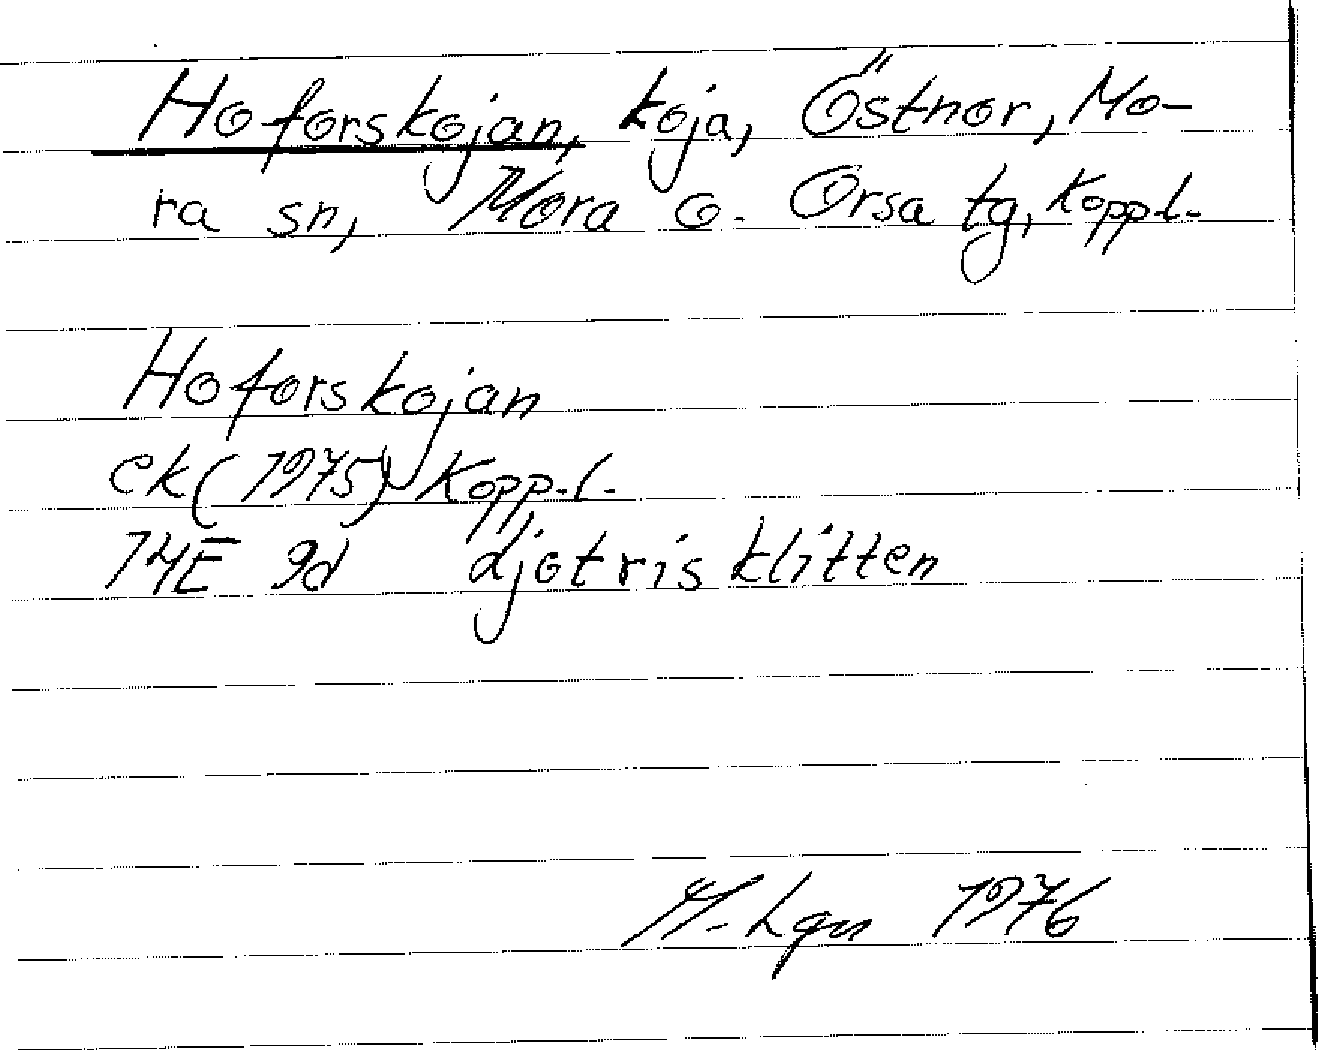 Hoforskojan, koja, Östnor, Mo-
ra sn, Mora o. Orsa tg, Kopp.l.
Hoforskojan
ek (1975) Kopp.l.
14E 9d djotrisklitten
M. Lgn 1976